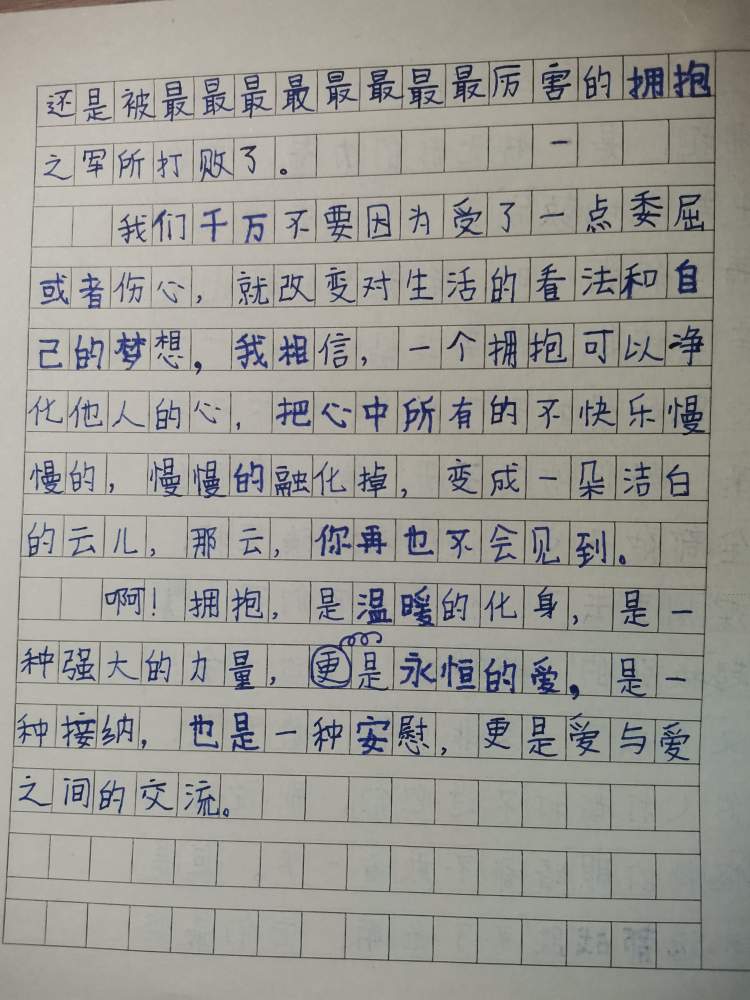 还是被最最最最最最最最厉害的拥抱
之军所打败了。 一
我们千万不要因为受了一点委屈
或者伤心，就改变对生活的看法和自
己的梦想，我相信，一个拥抱可以净
化他人的心，把心中所有的不快乐慢
慢的，慢慢的融化掉，变成一朵洁白
的云儿，那云，你再也不会见到。
啊！拥抱，是温暖的化身，是一
种强大的力量，更是永恒的爱，是一
种接纳，也是一种安慰，更是爱与爱
之间的交流。